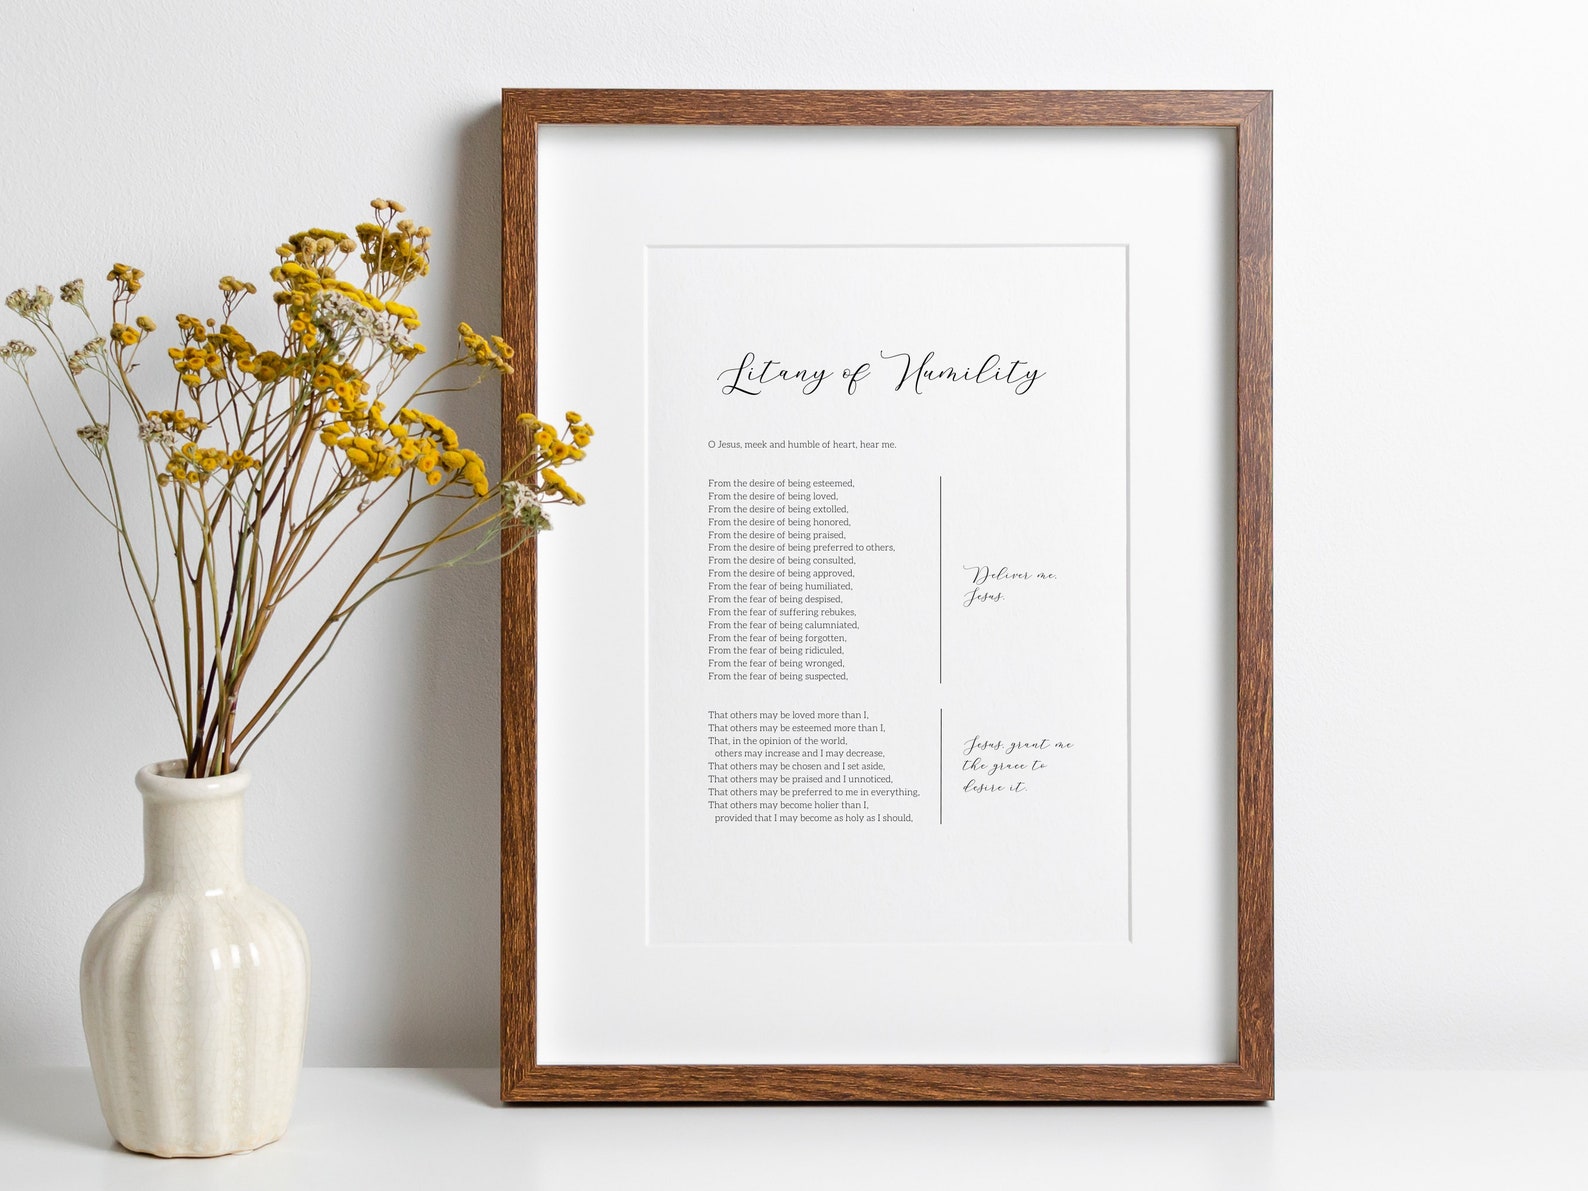 Litany of Humility
O Jesus, meek and humble of heart, hear me.
From the desire of being esteemed,
From the desire of being loved,
From the desire of being extolled,
From the desire of being honored,
From the desire of being praised,
From the desire of being preferred to others,
From the desire of being consulted,
From the desire of being approved,
From the fear of being humiliated,
From the fear of being despised,
From the fear of suffering rebukes,
From the fear of being calumniated,
From the fear of being forgotten,
From the fear of being ridiculed,
From the fear of being wronged,
From the fear of being suspected,
Deliver me,
Jesus.
That others may be loved more than I,
That others may be esteemed more than I,
That, in the opinion of the world,
others may increase and I may decrease,
That others may be chosen and I set aside,
That others may be praised and I unnoticed,
That others may be preferred to me in everything,
That others may become holier than I,
provided that I may become as holy as I should,
Jesus, grant me
the grace to
desire it.